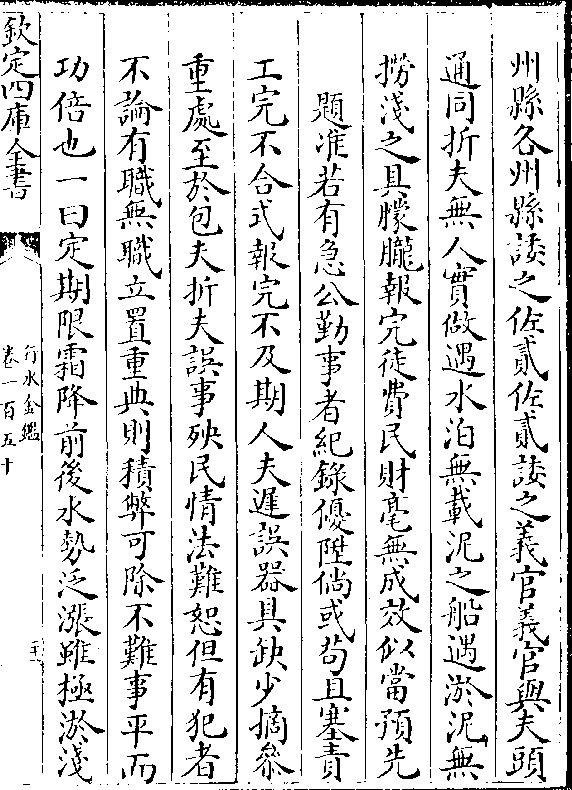 州縣各州縣諉之佐貳佐貳諉之義官義官與夫頭
通同折夫無人實做遇水泊無載泥之船遇淤泥無
撈淺之具朦朧報完徒費民財毫無成效似當預先
題准若有急公勤事者紀錄優陞倘或茍且塞責
工完不合式報完不及期人夫遲誤器具缺少摘叅
重處至於包夫折夫誤事殃民情法難恕但有犯者
不論有職無職立置重典則積弊可除不難事平而
功倍也一曰定期限霜降前後水勢泛漲雖極淤淺
欽定四庫全書
行水金鑑
卷一百五十